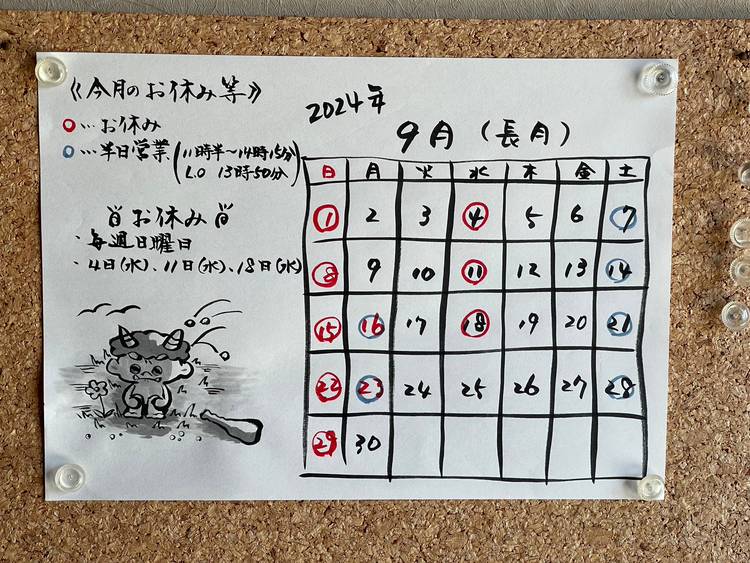 《今月のお休み等》
○…お休み
○…半日営業(11時半〜14時15分
L.O 13時50分)
お休み
・毎週日曜日
・4日(水)、11日(水)、18日(水)
2024年
9月(長月)
日 月 火 水 木 金 土
1 2 3 4 5 6 7
8 9 10 11 12 13 14
15 16 17 18 19 20 21
22 23 24 25 26 27 28
29 30